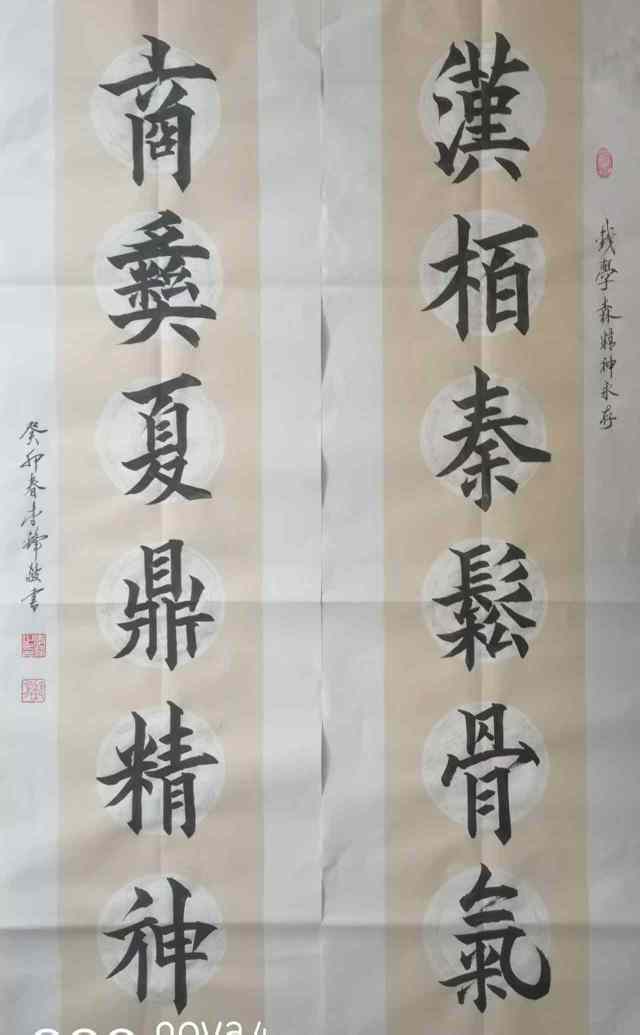 钱學森精神永存
漢柏秦鬆骨氣
商彝夏鼎精神
癸卯春李敬書
nova 4